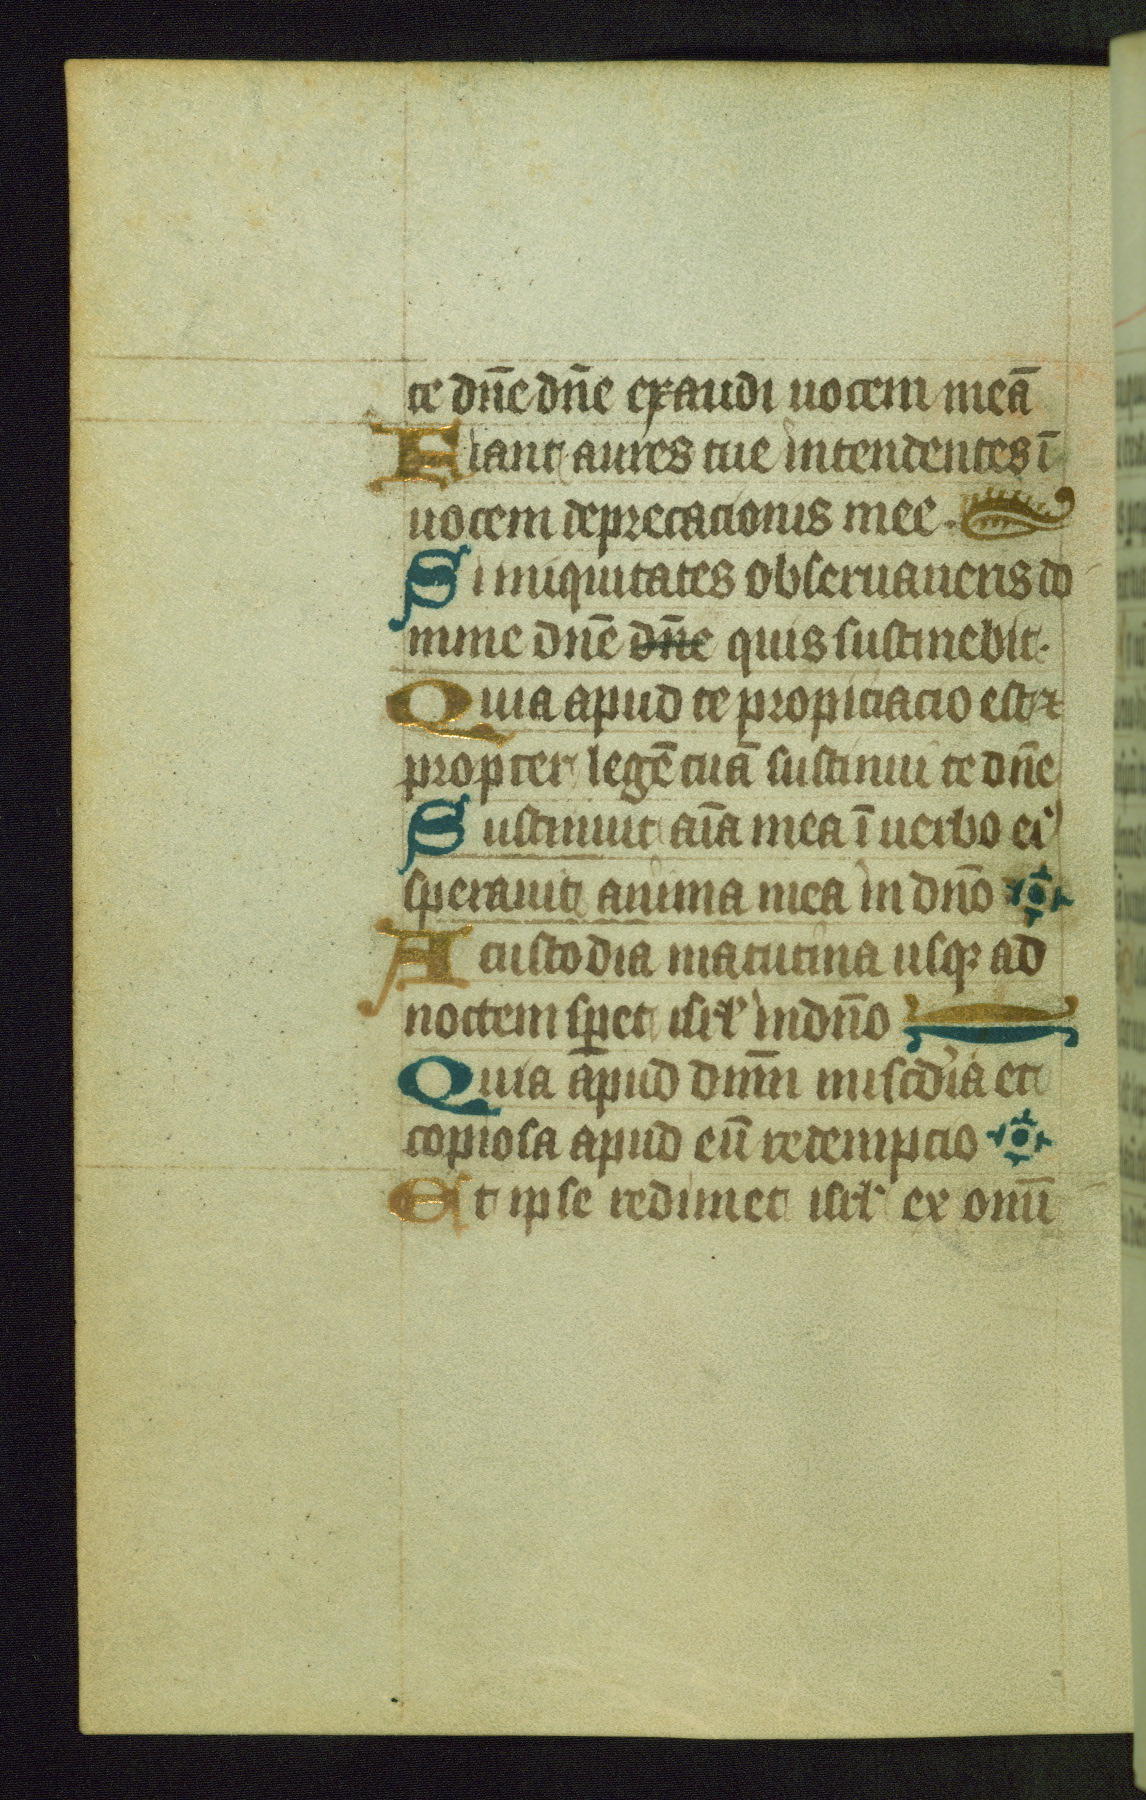 te dn̄e dn̄e exaudi uocem meā
Fiant aures tue intendentes ī
uocem deprecacionis mee.
Si iniquitates obseruaueris do
mine dn̄e dn̄e quis sustinebit.
Quia apud te propiciacio est ⁊
propter legē tuā sustinui te dn̄e
Sustinuit aīa mea ī uerbo eiꝰ
sperauit anima mea in dn̄o
A custodia matutina usqꝫ ad
noctem sꝑet isrl̓ in dn̄o
Quia apud dnm̄ misc̄dia et
copiosa apud eū redempcio
Et ipse redimet isrl̓ ex omī